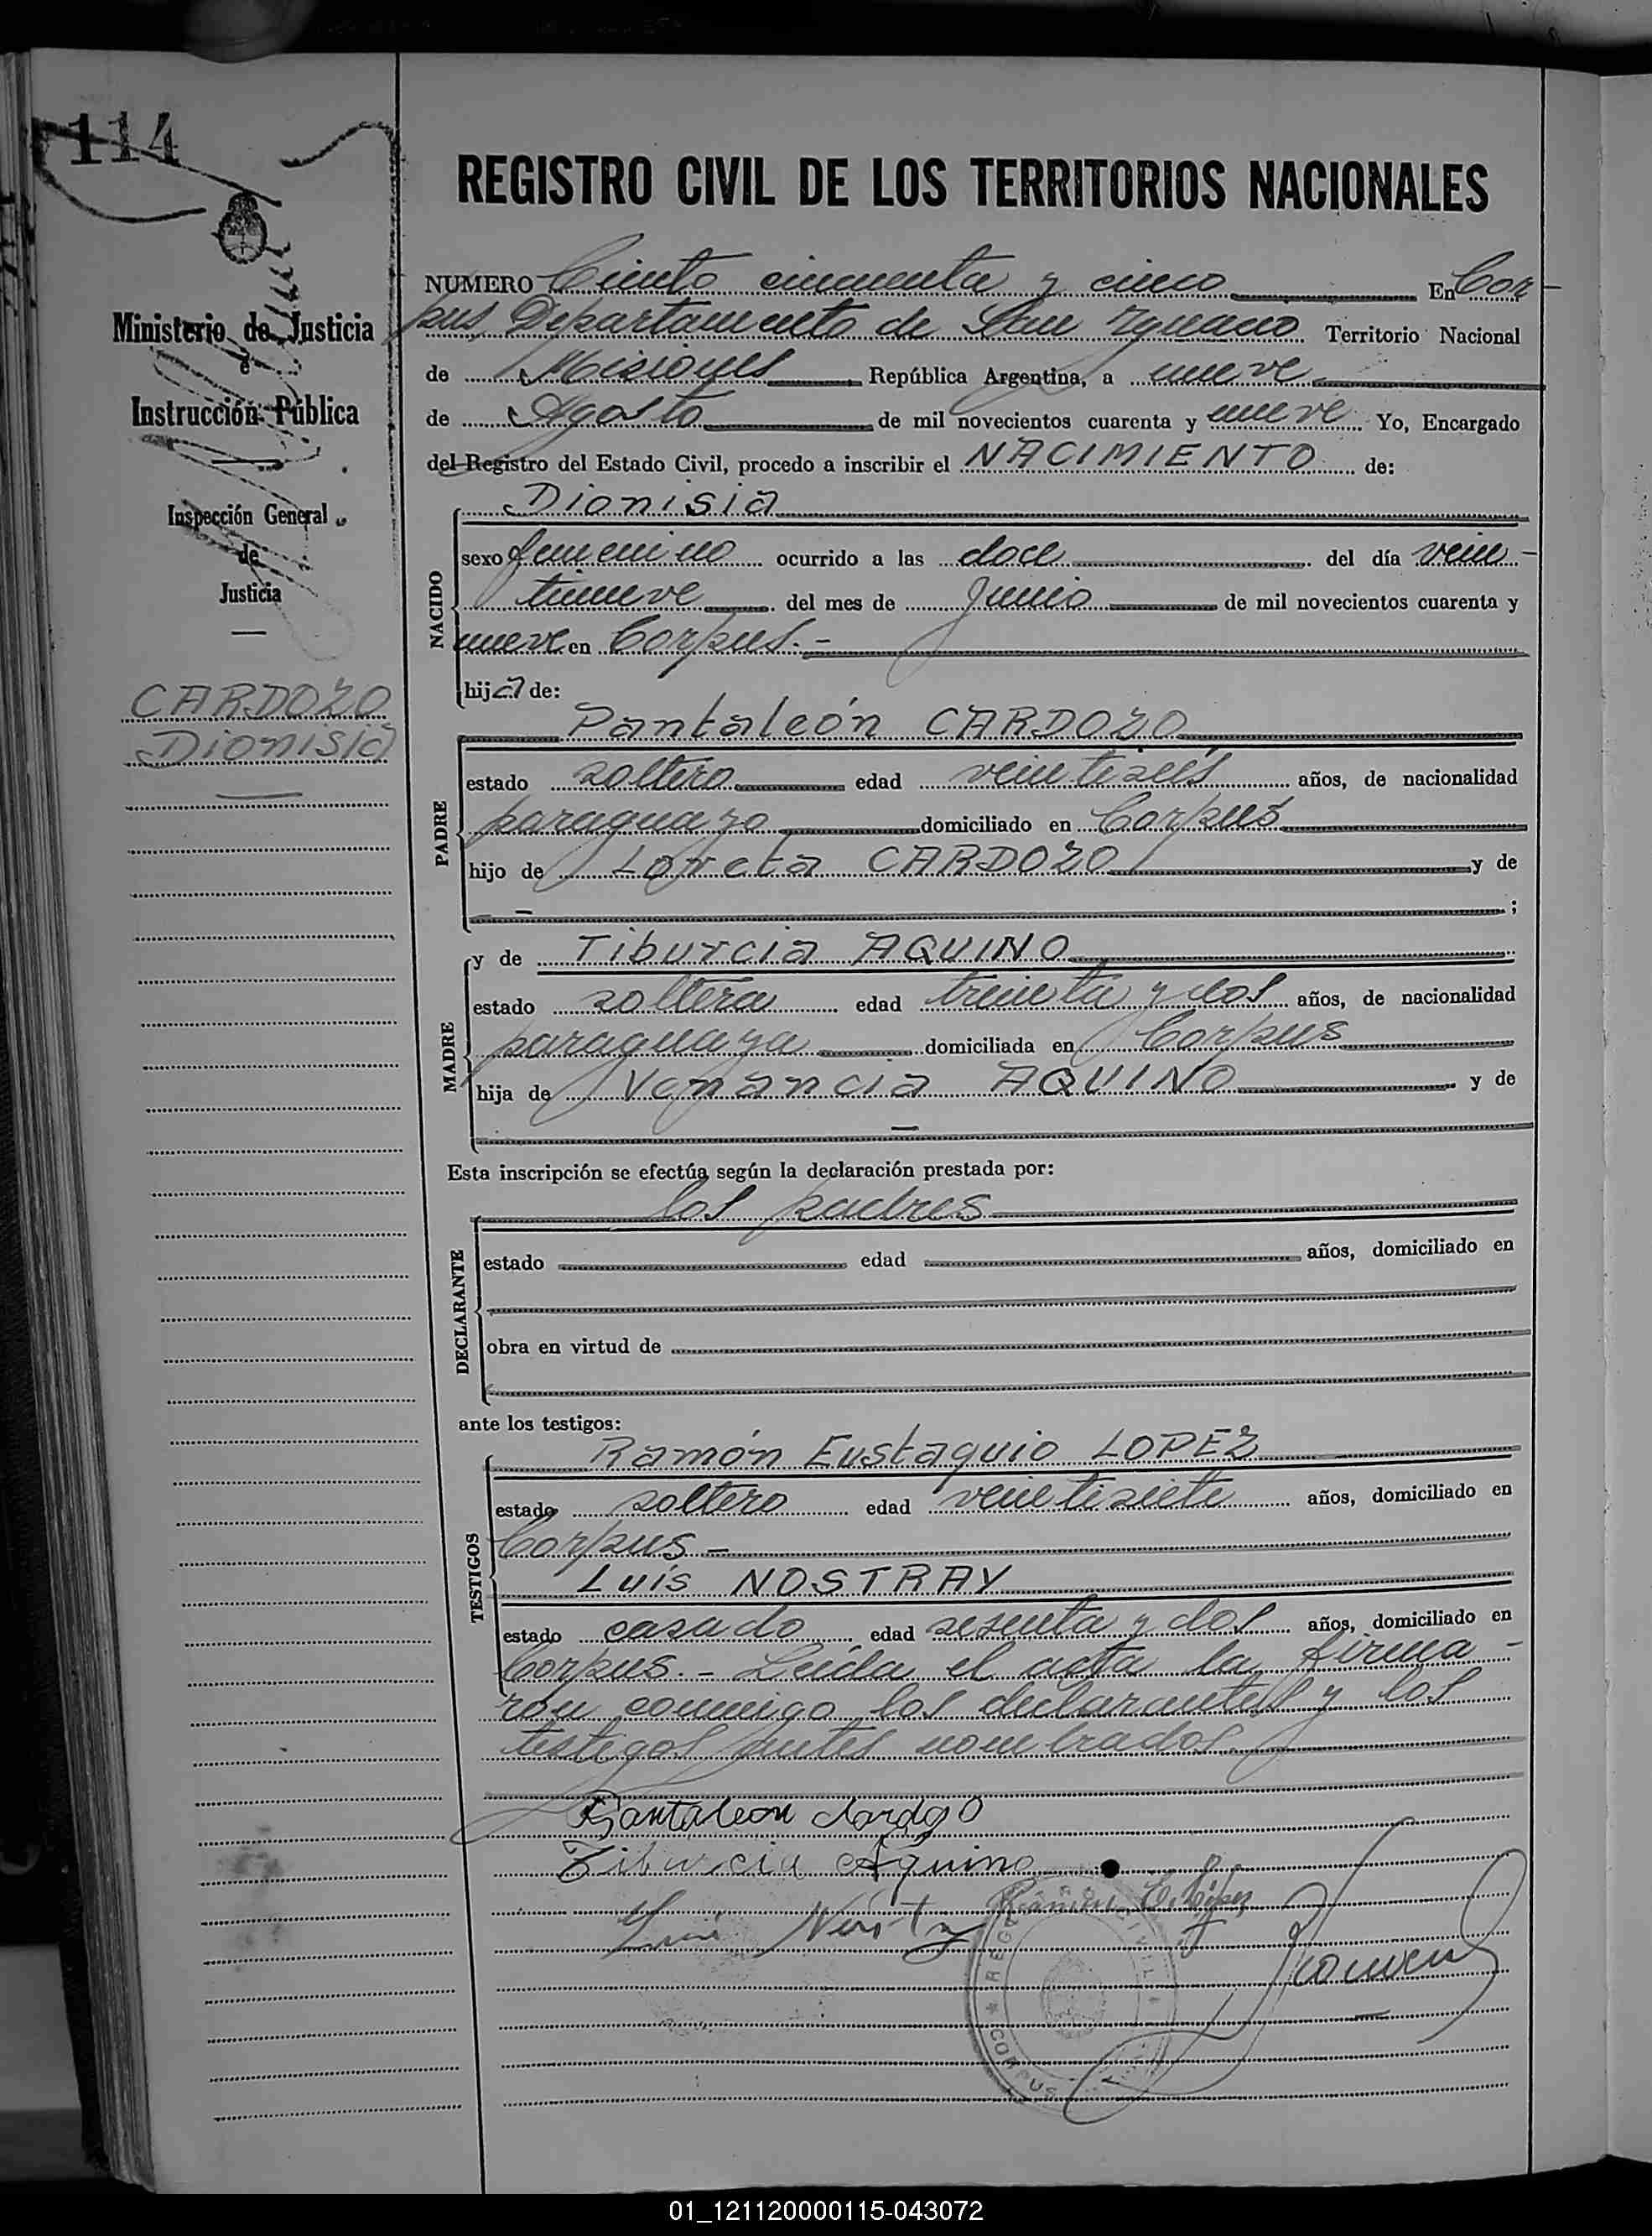 114
REGISTRO CIVIL DE LOS TERRITORIOS NACIONALES
Ministerio de Justicia
e
Instrucción Pública
Inspección General
de
Justicia
CARDOZO
Dionisia
NUMERO Ciento cincuenta y cinco En Cor-
pus Departamento de San Ygnacio Territorio Nacional
de Misiones República Argentina, a nueve
de Agosto de mil novecientos cuarenta y nueve Yo, Encargado
del Registro del Estado Civil, procedo a inscribir el NACIMIENTO de:
NACIDO
Dionisia
sexo femenino ocurrido a las doce del día vein-
tinueve del mes de Junio de mil novecientos cuarenta y
nueve en Corpus.-
hija de:
PADRE
Pantaleón CARDOZO
estado soltero edad veintiseis años, de nacionalidad
paraguayo domiciliado en Corpus
hijo de Loreta CARDOZO y de
- ;
MADRE
y de Tiburcia AQUINO
estado soltera edad treinta y dos años, de nacionalidad
paraguaya domiciliada en Corpus
hija de Venancia AQUINO y de
-
Esta inscripción se efectúa según la declaración prestada por:
DECLARANTE
los padres
estado edad años, domiciliado en
obra en virtud de
ante los testigos:
TESTIGOS
Ramón Eustaquio LOPEZ
estado soltero edad veintisiete años, domiciliado en
Corpus -
Luis NOSTRAY
estado casado edad sesenta y dos años, domiciliado en
Corpus.- Leída el acta la firma-
ron conmigo los declarantes y los
testigos antes nombrados.
Pantaleon Cardozo
Tiburcia Aquino
Ramón E. López
Luis
REGISTRO CIVIL
CORPUS
01_121120000115-043072